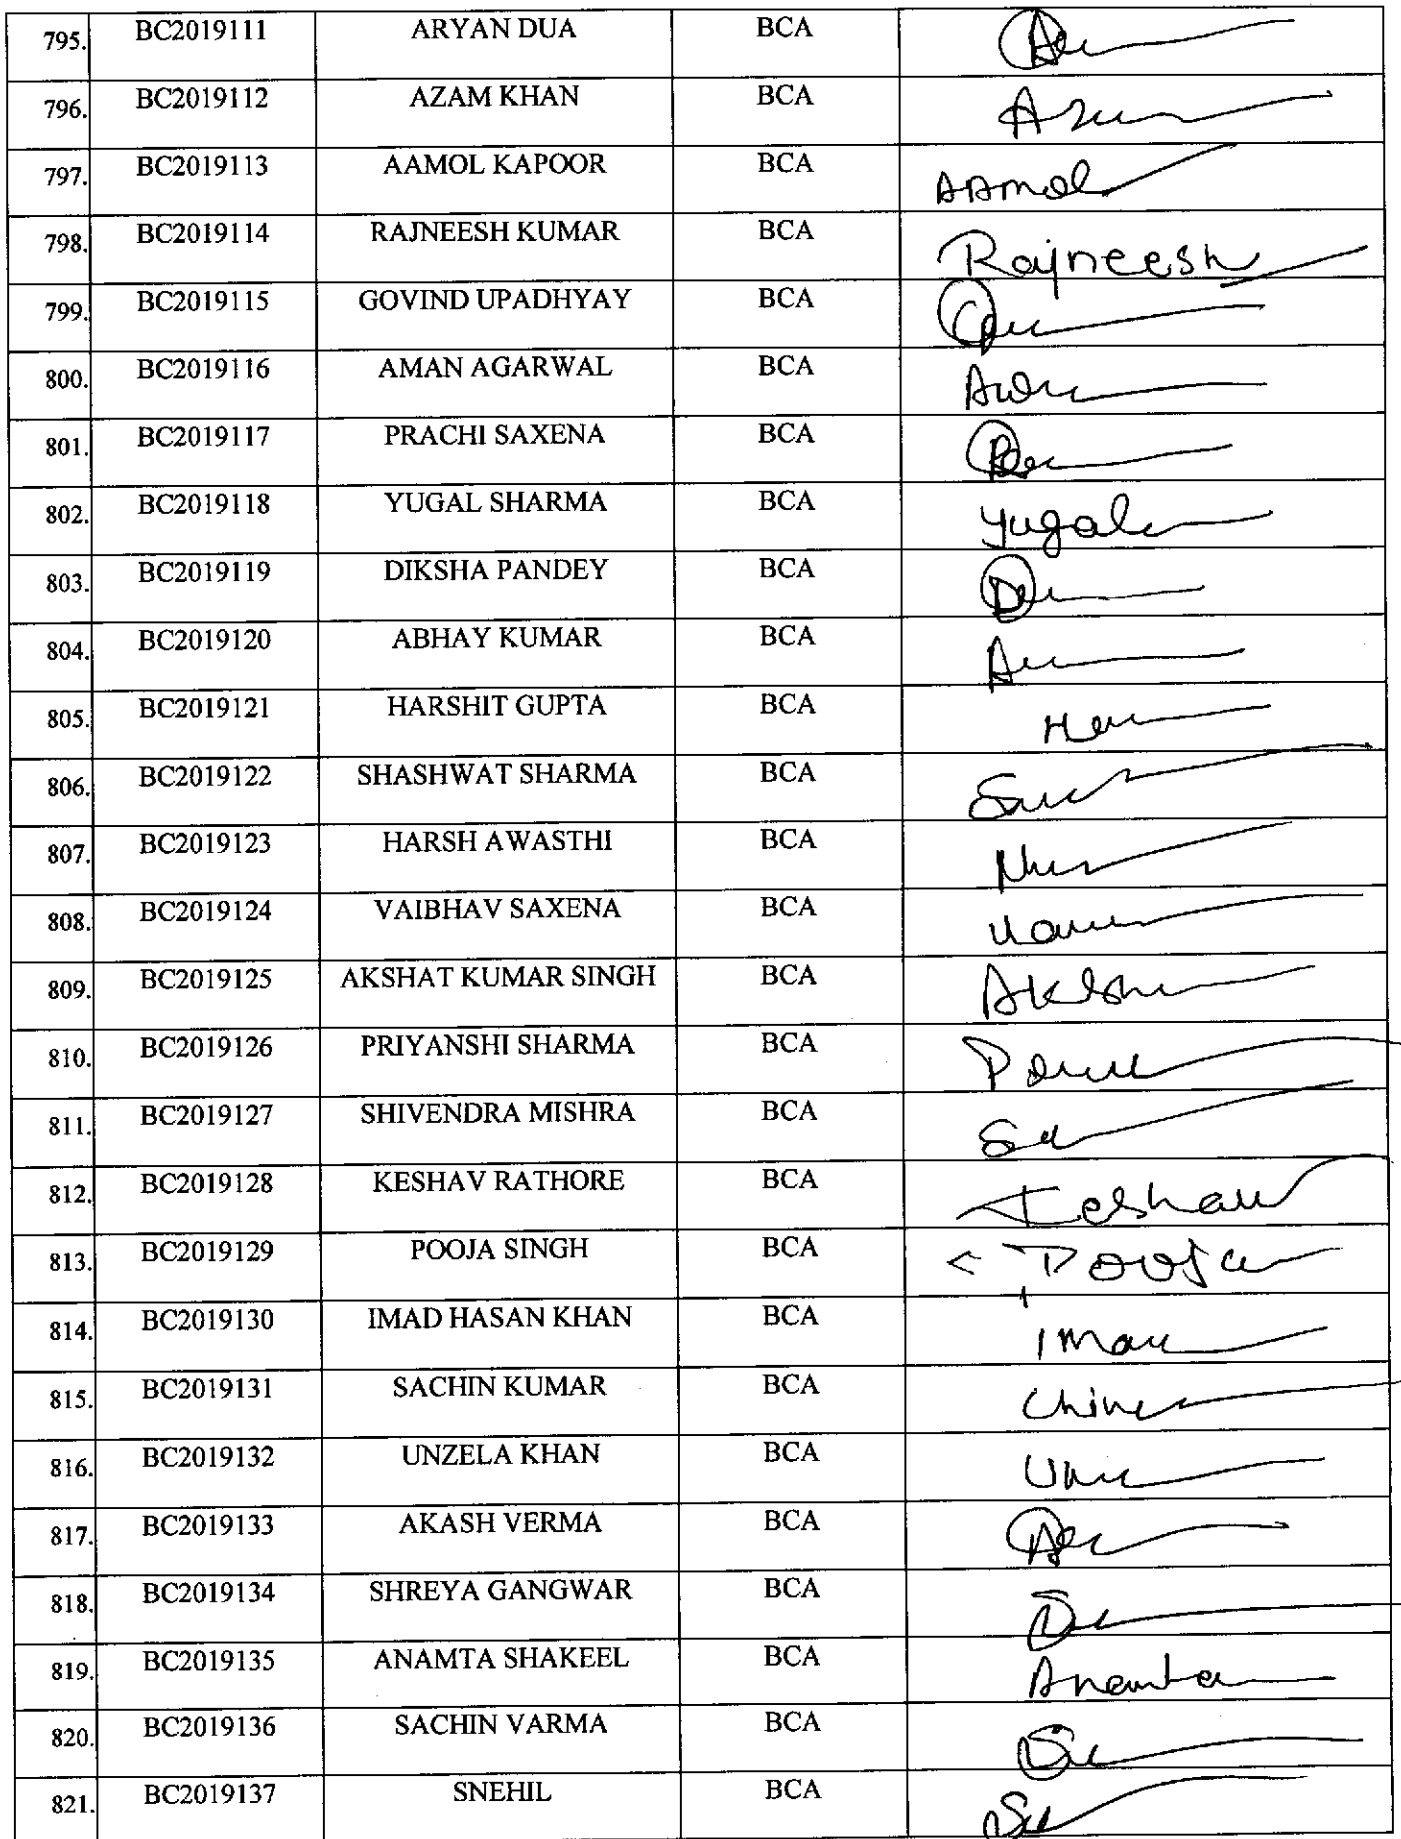 795. BC2019111 ARYAN DUA BCA
796. BC2019112 AZAM KHAN BCA
797. BC2019113 AAMOL KAPOOR BCA AAmol
798. BC2019114 RAJNEESH KUMAR BCA Rajneesh
799. BC2019115 GOVIND UPADHYAY BCA
800. BC2019116 AMAN AGARWAL BCA
801. BC2019117 PRACHI SAXENA BCA
802. BC2019118 YUGAL SHARMA BCA Yugal
803. BC2019119 DIKSHA PANDEY BCA
804. BC2019120 ABHAY KUMAR BCA
805. BC2019121 HARSHIT GUPTA BCA
806. BC2019122 SHASHWAT SHARMA BCA
807. BC2019123 HARSH AWASTHI BCA
808. BC2019124 VAIBHAV SAXENA BCA
809. BC2019125 AKSHAT KUMAR SINGH BCA
810. BC2019126 PRIYANSHI SHARMA BCA
811. BC2019127 SHIVENDRA MISHRA BCA
812. BC2019128 KESHAV RATHORE BCA Keshav
813. BC2019129 POOJA SINGH BCA Pooja
814. BC2019130 IMAD HASAN KHAN BCA
815. BC2019131 SACHIN KUMAR BCA
816. BC2019132 UNZELA KHAN BCA
817. BC2019133 AKASH VERMA BCA
818. BC2019134 SHREYA GANGWAR BCA
819. BC2019135 ANAMTA SHAKEEL BCA Anamta
820. BC2019136 SACHIN VARMA BCA
821. BC2019137 SNEHIL BCA